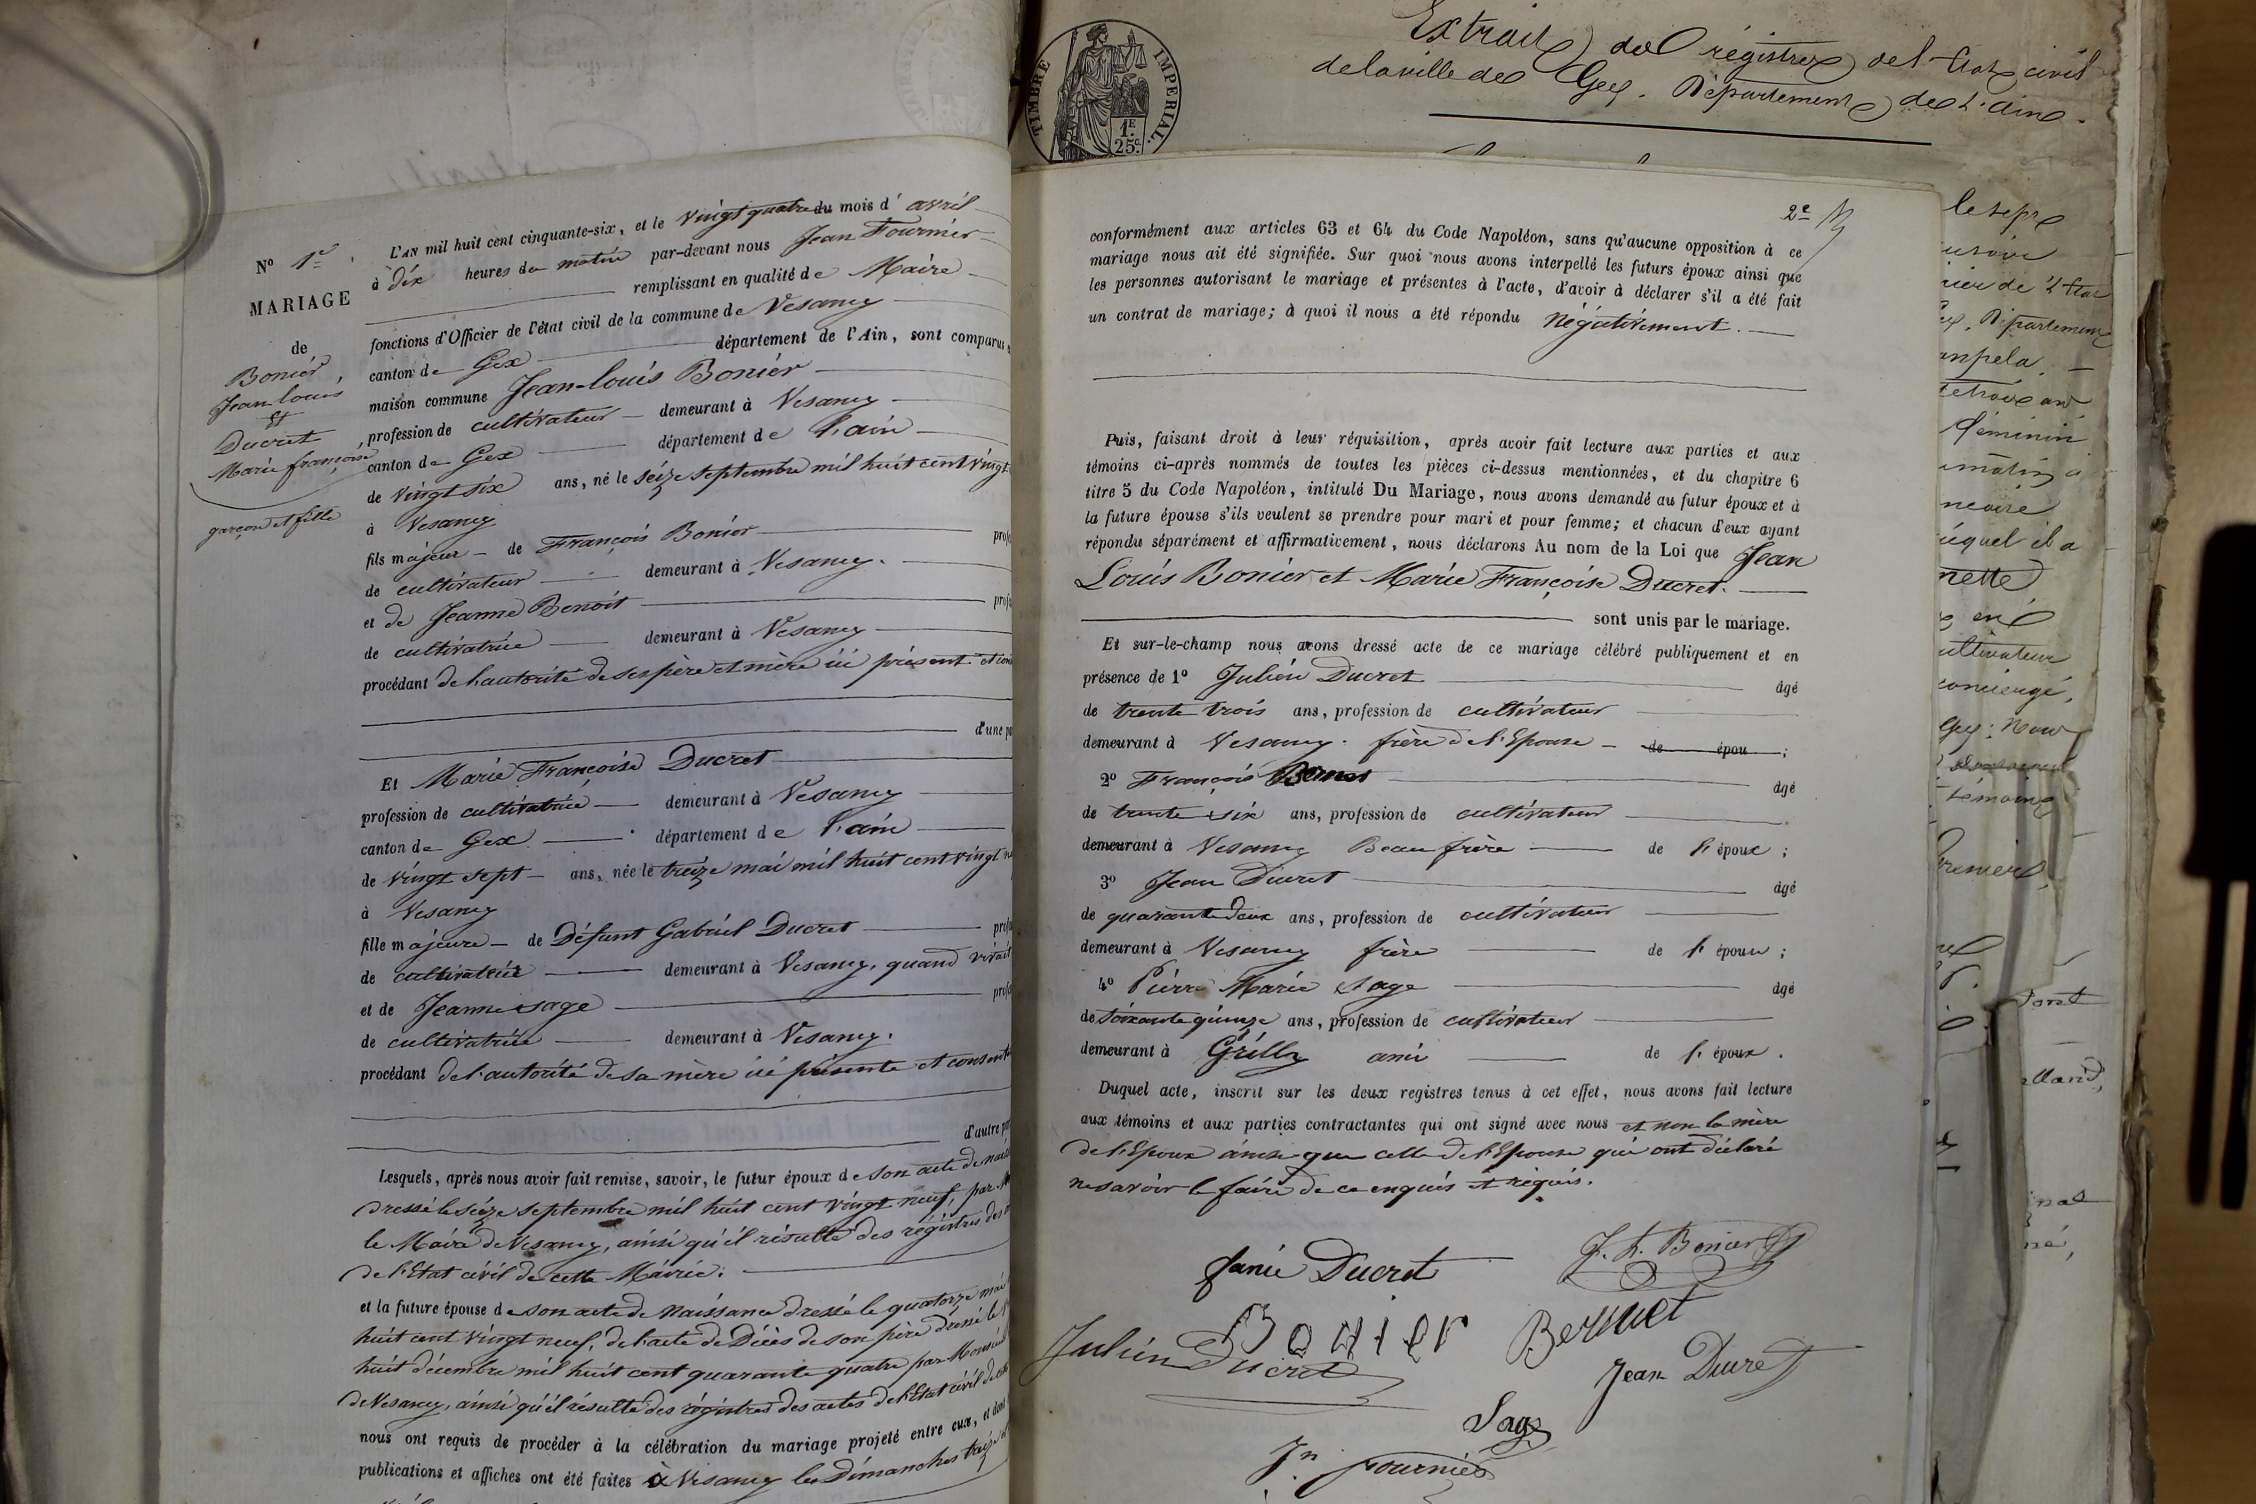 Nº 1er
MARIAGE
de
Bonier,
Jean louis
Et
Ducret
Marie françoise
garçon et fille
L'AN mil huit cent cinquante-six, et le vingt quatre du mois d' avril
à dix heures du matin par-devant nous Jean Fournier
remplissant en qualité de Maire
fonctions d'Officier de l'état civil de la commune de Vesancy
canton de Gex département de l'Ain, sont comparus
maison commune Jean-louis Bonier
profession de cultivateur demeurant à Vesancy
canton de Gex département de l'ain
de vingt six ans, né le seize septembre mil huit cent vingt
à Vesancy
fils majeur de François Bonier
de cultivateur demeurant à Vesancy.
et de Jeanne Benoit
de cultivatrice demeurant à Vesancy
procédant de l'autorité de ses père et mère ici présent et
d'une
Et Marie Françoise Ducret
profession de cultivatrice demeurant à Vesancy
canton de Gex département de l'ain
de vingt sept ans, née le treize mai mil huit cent vingt
à Vesancy
fille majeure de Défunt Gabriel Ducret
de cultivateur demeurant à Vesancy, quand vivait
et de Jeanne sage
de cultivatrice demeurant à Vesancy.
procédant de l'autorité de sa mère ici présente et
d'autre
Lesquels, après nous avoir fait remise, savoir, le futur époux de son acte de
dressé le seize septembre mil huit cent vingt neuf, par
le Maire de Vesancy, ainsi qu'il résulte des régistres des
de l'Etat civil de cette Mairie.
et la future épouse de son acte de Naissance dressé le quatorze mai
huit cent vingt neuf, de l'acte de Décès de son père dressé le
huit décembre mil huit cent quarante quatre par
de Vesancy, ainsi qu'il résulte des régistres des actes de l'Etat civil de
nous ont requis de procéder à la célébration du mariage projeté entre eux, et dont
publications et affiches ont été faites à Vesancy les Dimanches treize
TIMBRE IMPERIAL.
1F.
25c.
Extrait des régistres de l'Etat civil
de la ville de Gex. Département de l'ain.
2e
conformément aux articles 63 et 64 du Code Napoléon, sans qu'aucune opposition à ce
mariage nous ait été signifiée. Sur quoi nous avons interpellé les futurs époux ainsi que
les personnes autorisant le mariage et présentes à l'acte, d'avoir à déclarer s'il a été fait
un contrat de mariage; à quoi il nous a été répondu Négativement.
Puis, faisant droit à leur réquisition, après avoir fait lecture aux parties et aux
témoins ci-après nommés de toutes les pièces ci-dessus mentionnées, et du chapitre 6
titre 5 du Code Napoléon, intitulé Du Mariage, nous avons demandé au futur époux et à
la future épouse s'ils veulent se prendre pour mari et pour femme; et chacun d'eux ayant
répondu séparément et affirmativement, nous déclarons Au nom de la Loi que Jean
Louis Bonier et Marie Françoise Ducret.
sont unis par le mariage.
Et sur-le-champ nous avons dressé acte de ce mariage célébré publiquement et en
présence de 1º Julien Ducret âgé
de trente trois ans, profession de cultivateur
demeurant à Vesancy. frère de l'Epouse de épou ;
2º François âgé
de trente six ans, profession de cultivateur
demeurant à Vesancy Beau frère de l'époux ;
3º Jean Ducret âgé
de quarante deux ans, profession de cultivateur
demeurant à Vesancy frère de l'épouse ;
4º Pierre Marie sage âgé
de soixante quinze ans, profession de cultivateur
demeurant à Grilly ami de l'époux.
Duquel acte, inscrit sur les deux registres tenus à cet effet, nous avons fait lecture
aux témoins et aux parties contractantes qui ont signé avec nous et non la mère
de l'Epoux ainsi que celle de l'Epouse qui ont déclaré
ne savoir le faire de ce enquis et réquis.
fanie Ducret J. L. Bonier
Bonier Bernuet
Julien Ducret Jean Ducret
Sage
Jn fournier
Département
féminin
matin à
il a
cultivateur
concierge,
témoins